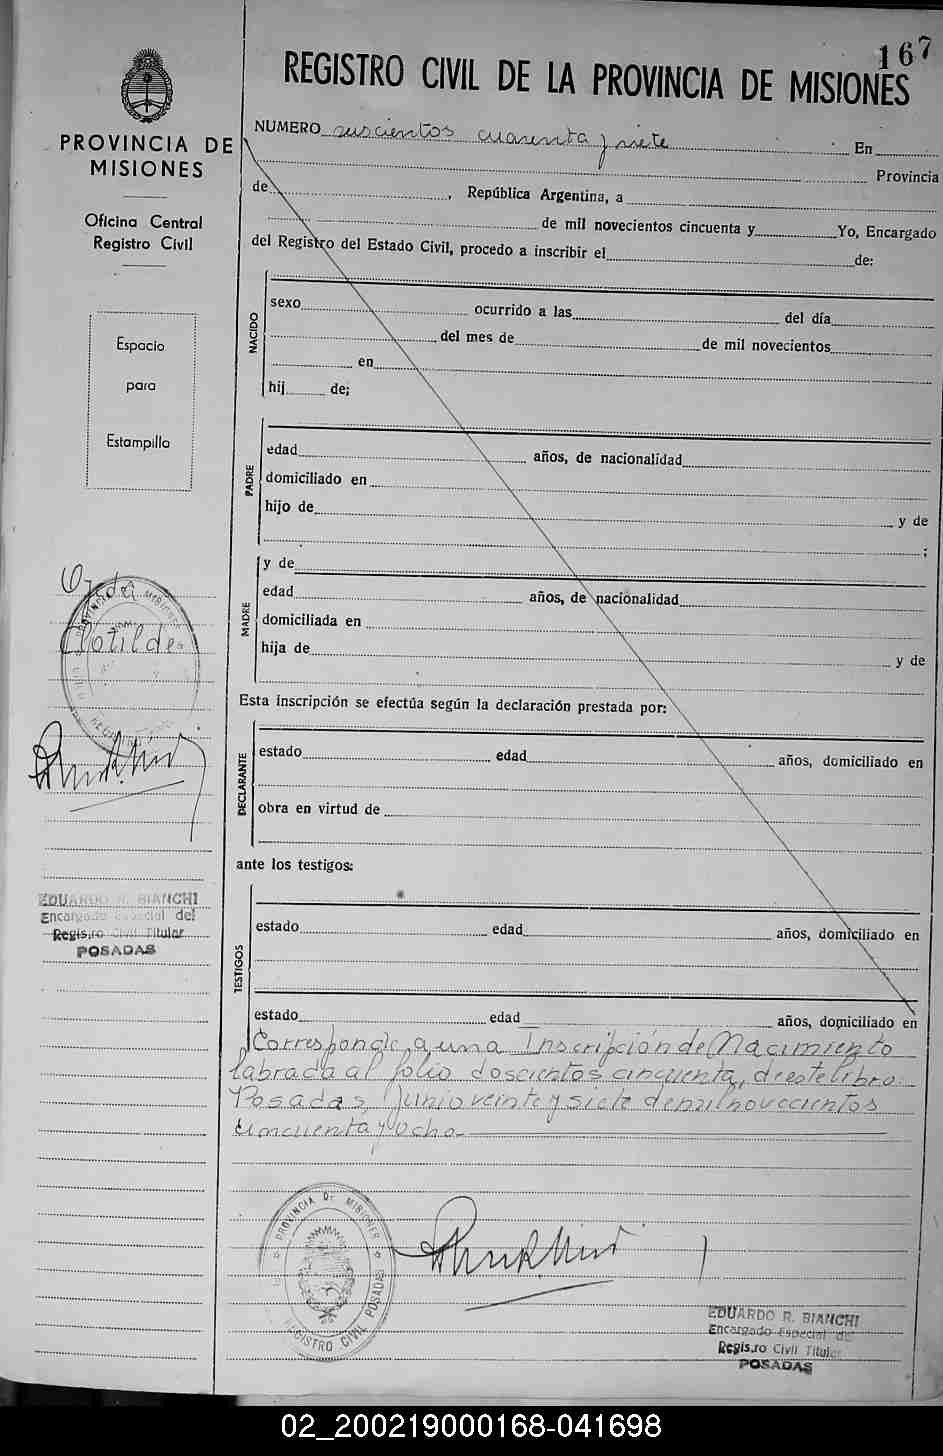 167
REGISTRO CIVIL DE LA PROVINCIA DE MISIONES
PROVINCIA DE
MISIONES
Oficina Central
Registro Civil
Espacio
para
Estampilla
Clotilde
EDUARDO R. BIANCHI
Encargado Especial del
Regis.ro Civil Titular
POSADAS
NUMERO seiscientos cuarenta y siete En
Provincia
de , República Argentina, a
de mil novecientos cincuenta y Yo, Encargado
del Registro del Estado Civil, procedo a inscribir el de:
NACIDO
sexo ocurrido a las del día
del mes de de mil novecientos
en
hij de;
PADRE
edad años, de nacionalidad
domiciliado en
hijo de y de
;
MADRE
y de
edad años, de nacionalidad
domiciliada en
hija de y de
Esta inscripción se efectúa según la declaración prestada por:
DECLARANTE
estado edad años, domiciliado en
obra en virtud de
ante los testigos:
TESTIGOS
estado edad años, domiciliado en
estado edad años, domiciliado en
Corresponde a una Inscripción de Nacimiento
labrada al folio doscientos cincuenta, de este libro.
Posadas, Junio veinte y siete de mil novecientos
cincuenta y ocho
PROVINCIA DE MISIONES
REGISTRO CIVIL POSADAS
EDUARDO R. BIANCHI
Encargado Especial de
Regis.ro Civil Titular
POSADAS
02_200219000168-041698